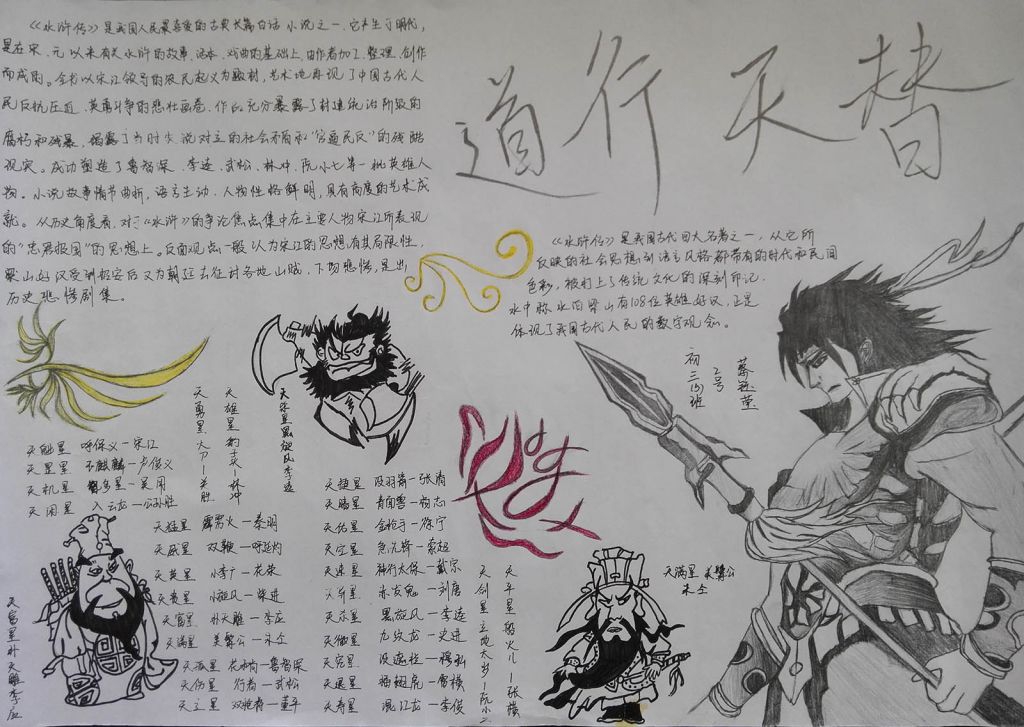 替天行道
《水浒传》是我国人民最喜爱的古典长篇白话小说之一。它产生于明代，
是在宋、元以来有关水浒的故事、话本、戏曲的基础上，由作者加工、整理、创作
而成的。全书以宋江领导的农民起义为题材，艺术地再现了中国古代人
民反抗压迫、英勇斗争的悲壮画卷。作品充分暴露了封建统治阶级的
腐朽和残暴，揭露了当时尖锐对立的社会矛盾和“官逼民反”的残酷
现实。成功塑造了鲁智深、李逵、武松、林冲、阮小七等一批英雄人
物。小说故事情节曲折，语言生动，人物性格鲜明，具有高度的艺术成
就。从历史角度看，对于《水浒》的争论焦点集中在主要人物宋江所表现
的“忠君报国”的思想上。反面观点一般认为宋江的思想有其局限性，
梁山好汉受到招安后又为朝廷去征讨各地山贼，下场悲惨，是出
历史悲惨剧集。
《水浒传》是我国古代四大名著之一，从它所
反映的社会思想到语言风格都带有的时代和民间
色彩，被打上了传统文化的深刻印记。
水中称水泊梁山有108位英雄好汉，正是
体现了我国古代人民的数字观念。
初三(5)班
2号
天魁星 呼保义—宋江
天罡星 玉麒麟—卢俊义
天机星 智多星—吴用
天闲星 入云龙—公孙胜
天勇星 大刀—关胜
天雄星 豹子头—林冲
天杀星黑旋风李逵
天猛星 霹雳火—秦明
天威星 双鞭—呼延灼
天英星 小李广—花荣
天贵星 小旋风—柴进
天富星 扑天雕—李应
天满星 美髯公—朱仝
天孤星 花和尚—鲁智深
天伤星 行者—武松
天立星 双枪将—董平
天捷星 没羽箭—张清
天暗星 青面兽—杨志
天佑星 金枪手—徐宁
天空星 急先锋—索超
天速星 神行太保—戴宗
天异星 赤发鬼—刘唐
天杀星 黑旋风—李逵
天微星 九纹龙—史进
天究星 没遮拦—穆弘
天退星 插翅虎—雷横
天寿星 混江龙—李俊
天剑星 立地太岁—阮小二
天平星 船火儿—张横
天富星扑天雕李应
天满星 美髯公
朱仝